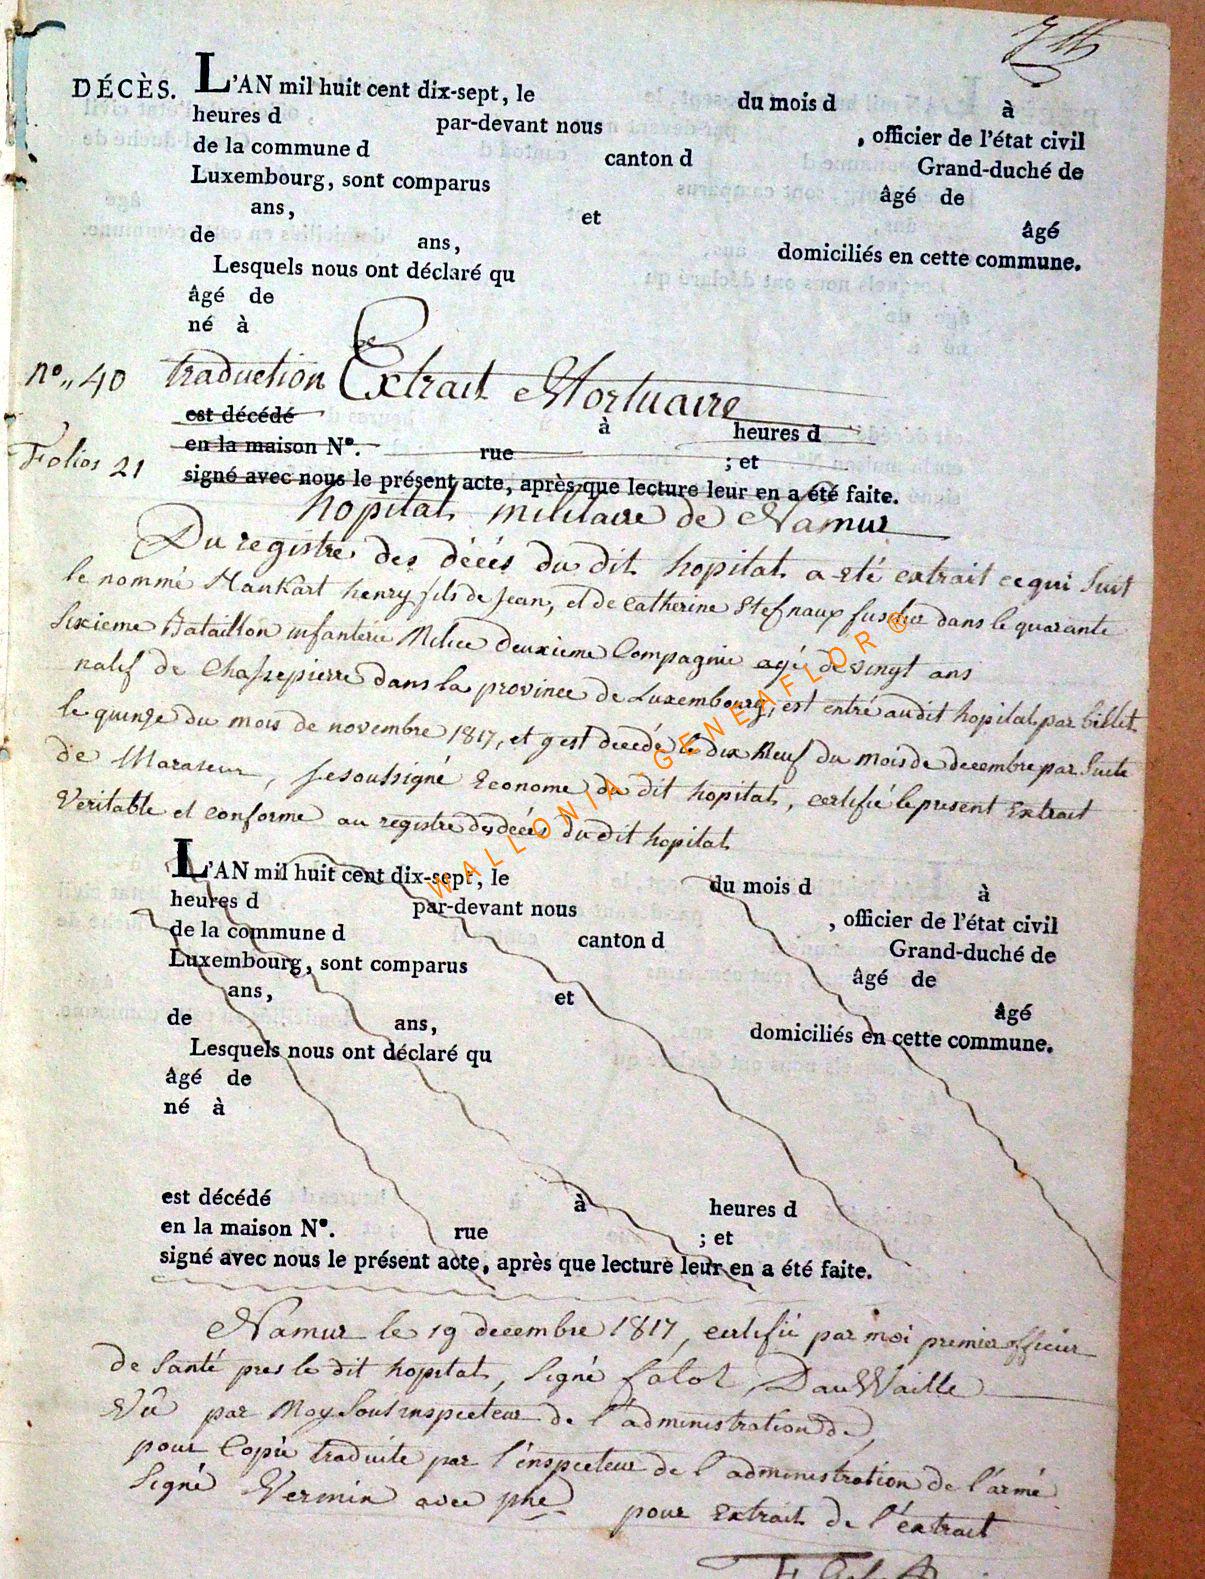 DÉCÈS. L'AN mil huit cent dix-sept, le du mois d à
heures d par-devant nous , officier de l'état civil
de la commune d canton d Grand-duché de
Luxembourg, sont comparus âgé de
ans, et âgé
de ans, domiciliés en cette commune.
Lesquels nous ont déclaré qu
âgé de
né à
n° 40 traduction Extrait Mortuaire
est décédé à heures d
en la maison N°. rue ; et
Folios 21
signé avec nous le présent acte, après que lecture leur en a été faite.
hopital militaire de Namur
Du registre des décés du dit hopital a été extrait ce qui Suit
le nommé Hankart henry fils de Jean, et de Catherine Stefnaux fusilier dans le quarante
Sixieme Bataillon infanterie Milice deuxieme Compagnie agé de vingt ans
natif de Chassepierre dans la province de Luxembourg, est entré au dit hopital par billet
le quinze du mois de novembre 1817, et y est decedé le dix Neuf du mois de decembre par Suite
de , Je soussigné Econome du dit hopital, certifié le present Extrait
Veritable et conforme au registre des decés du dit hopital
WALLONIA-GENEAFLOR®
L'AN mil huit cent dix-sept, le du mois d à
heures d par-devant nous , officier de l'état civil
de la commune d canton d Grand-duché de
Luxembourg, sont comparus âgé de
ans, et âgé
de ans, domiciliés en cette commune.
Lesquels nous ont déclaré qu
âgé de
né à
est décédé à heures d
en la maison N°. rue ; et
signé avec nous le présent acte, après que lecture leur en a été faite.
Namur le 19 decembre 1817, certifié par moi premier officier
de Santé pres le dit hopital, Signé
Vû par Moy Sous inspecteur de l'administration de,
pour Copie traduite par l'inspecteur de l'administration de l'armé
Signé Vermin avec phe pour Extrait de l'extrait